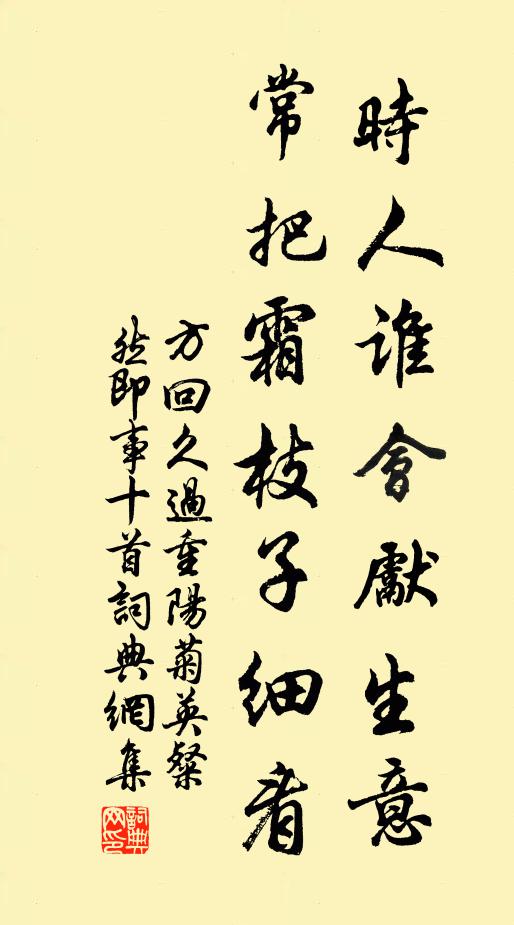 時人誰會獻生意
常把霜枝子細看
方回久過重陽菊英粲
然即事十首詞典網集
詞典
网印